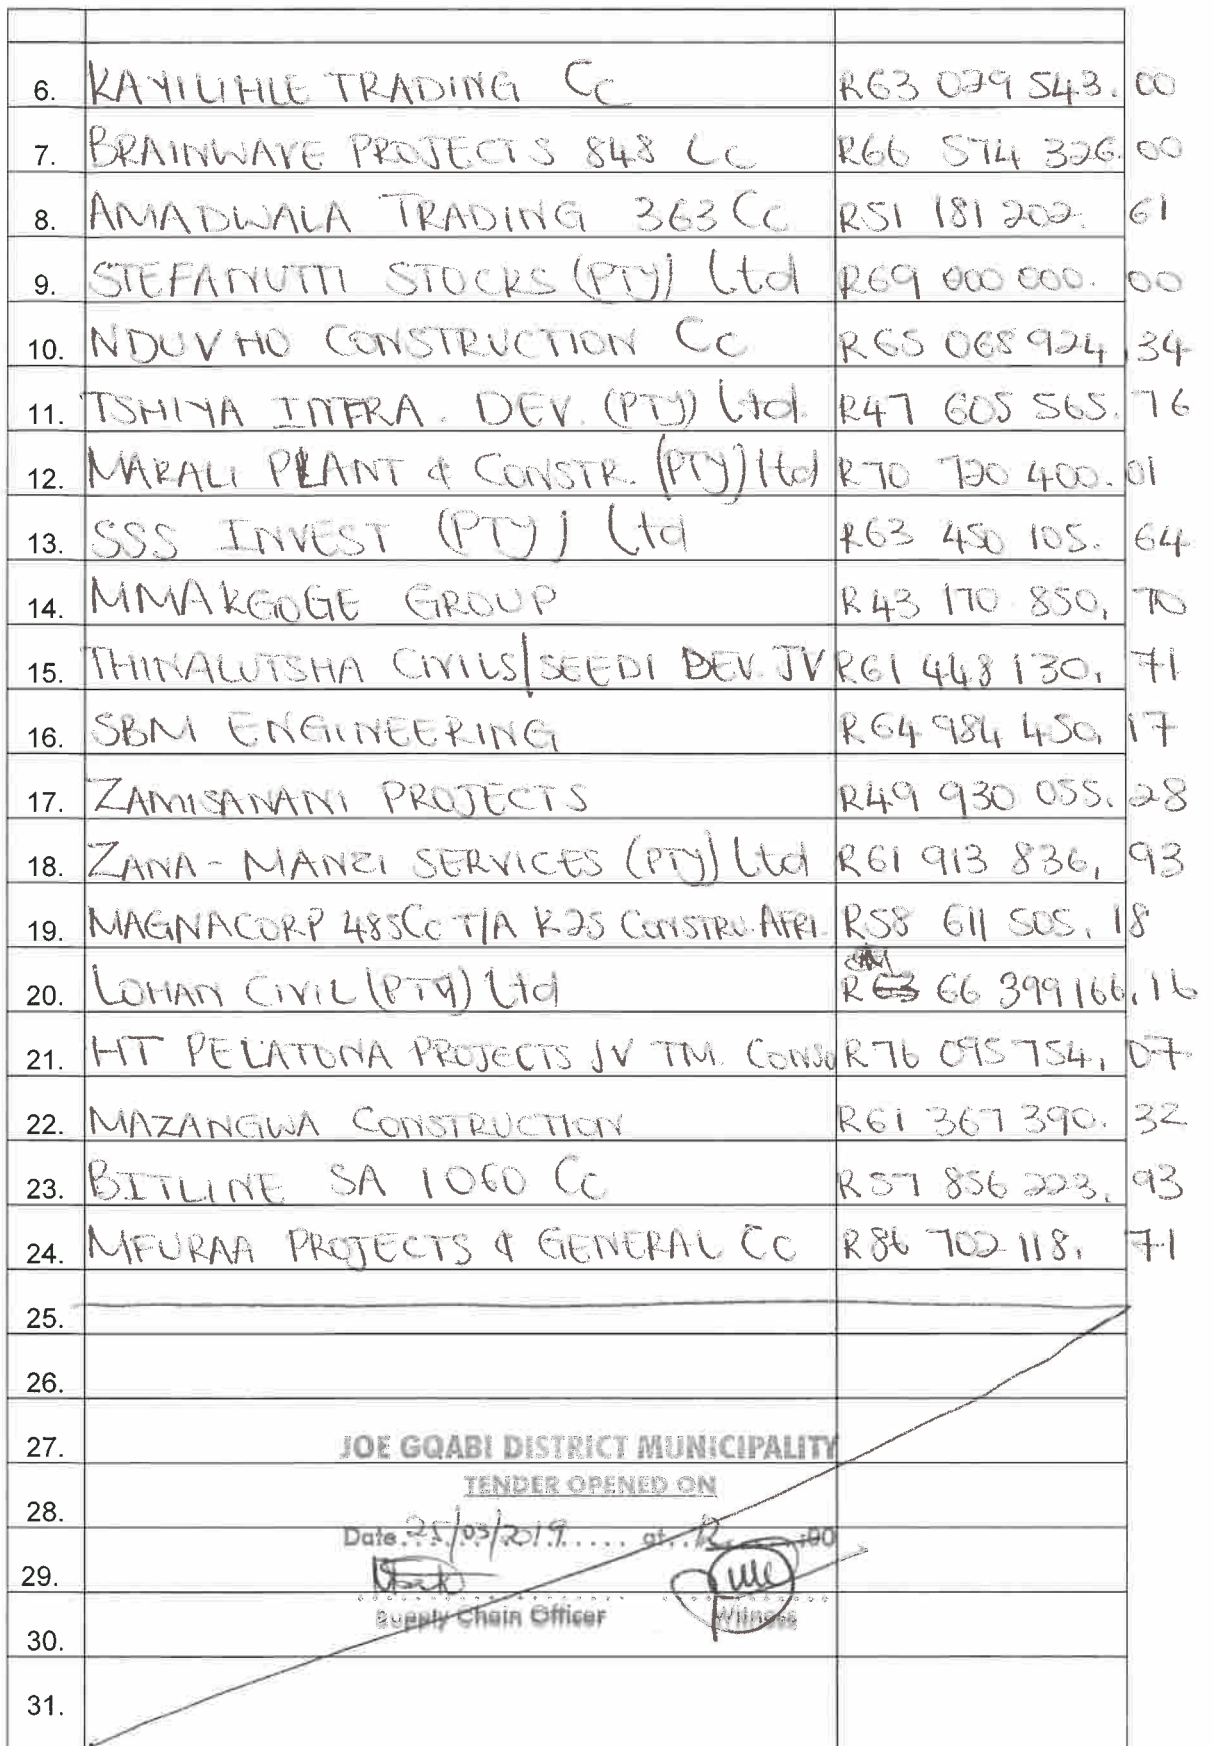 6. KAYILIHLE TRADING Cc R63 029 543. 00
7. BRAINWAVE PROJECTS 848 Cc R66 574 326. 00
8. AMADWALA TRADING 363 Cc R51 181 202. 61
9. STEFANUTTI STOCKS (PTY) Ltd R69 000 000. 00
10. NDUVHO CONSTRUCTION Cc R65 068 924, 34
11. TSHIYA INFRA. DEV. (PTY) Ltd. R47 605 565. 76
12. MARALI PLANT & CONSTR. (PTY) Ltd R70 720 400. 01
13. SSS INVEST (PTY) Ltd R63 450 105. 64
14. MMAKGOGE GROUP R43 170 850, 70
15. THINALUTSHA CIVILS/SEEDI DEV. JV R61 448 130, 71
16. SBM ENGINEERING R64 984 450, 17
17. ZAMISANANI PROJECTS R49 930 055. 28
18. ZANA-MANZI SERVICES (PTY) Ltd R61 913 836, 93
19. MAGNACORP 485Cc T/A K2S CONSTRU. AFRI. R58 611 505, 18
20. LOHAN CIVIL (PTY) Ltd R63 66 399 166, 16
21. HT PELATONA PROJECTS JV TM. CONSO R76 095 754, 07
22. MAZANGWA CONSTRUCTION R61 367 390. 32
23. BITLINE SA 1060 Cc R57 856 223, 93
24. MFURAA PROJECTS & GENERAL Cc R86 702 118, 71
25.
26.
27.
JOE GQABI DISTRICT MUNICIPALITY
TENDER OPENED ON
28.
Date 25/03/2019 at 12 :00
29.
Supply Chain Officer Witness
30.
31.